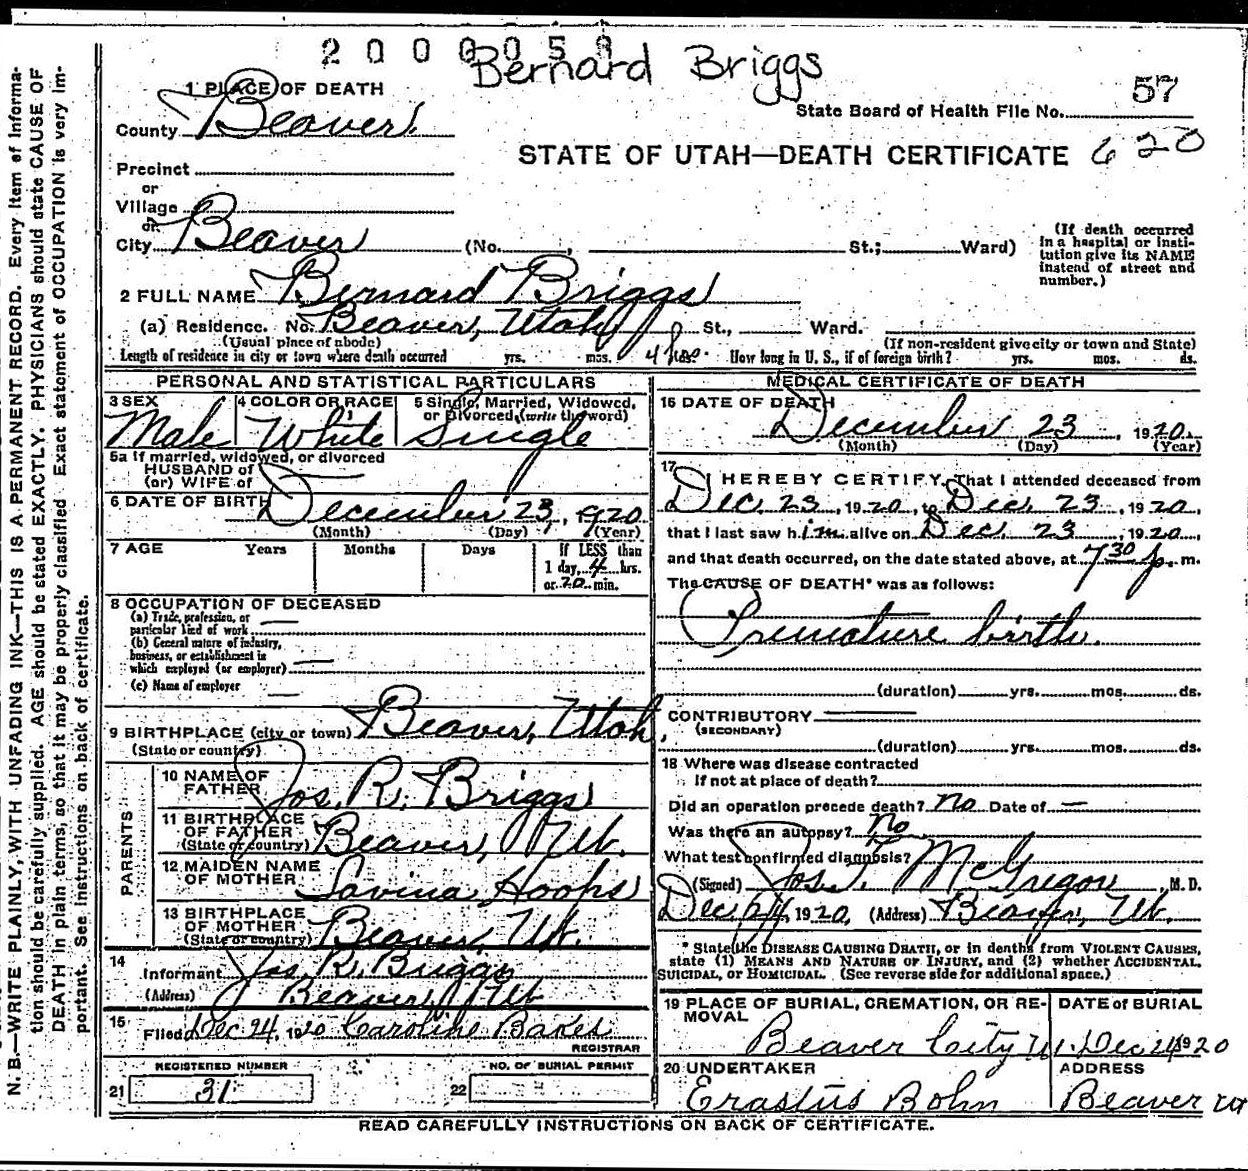 2000058
Bernard Briggs
1 PLACE OF DEATH
County Beaver
State Board of Health File No. 57
STATE OF UTAH—DEATH CERTIFICATE 620
Precinct
or
Village
or
City Beaver (No. , St.; Ward)
(If death occurred in a hospital or institution give its NAME instead of street and number.)
2 FULL NAME Bernard Briggs
(a) Residence. No. Beaver, Utah St., Ward.
(Usual place of abode) (If non-resident give city or town and State)
Length of residence in city or town where death occurred yrs. mos. 4 hrs. How long in U. S., if of foreign birth? yrs. mos. ds.
PERSONAL AND STATISTICAL PARTICULARS
3 SEX Male
4 COLOR OR RACE White
5 Single, Married, Widowed, or Divorced, (write the word) Single
5a If married, widowed, or divorced
HUSBAND of
(or) WIFE of —
6 DATE OF BIRTH December 23, 1920
(Month) (Day) (Year)
7 AGE Years Months Days If LESS than
1 day, 4 hrs.
or 20 min.
8 OCCUPATION OF DECEASED
(a) Trade, profession, or
particular kind of work —
(b) General nature of industry,
business, or establishment in
which employed (or employer) —
(c) Name of employer —
9 BIRTHPLACE (city or town) Beaver, Utah,
(State or country)
PARENTS
10 NAME OF
FATHER Jos. R. Briggs
11 BIRTHPLACE
OF FATHER
(State or country) Beaver, Ut.
12 MAIDEN NAME
OF MOTHER Lovina Hoops
13 BIRTHPLACE
OF MOTHER
(State or country) Beaver, Ut.
14
Informant Jos. R. Briggs
(Address) Beaver, Ut
15 Filed Dec 24, 1920 Caroline Bakes
REGISTRAR
REGISTERED NUMBER
21 31
NO. OF BURIAL PERMIT
22
MEDICAL CERTIFICATE OF DEATH
16 DATE OF DEATH
December 23, 1920.
(Month) (Day) (Year)
17
I HEREBY CERTIFY, That I attended deceased from
Dec. 23, 1920, to Dec. 23, 1920,
that I last saw him alive on Dec. 23, 1920,
and that death occurred, on the date stated above, at 7 30 p. m.
The CAUSE OF DEATH* was as follows:
Premature birth.
(duration) yrs. mos. ds.
CONTRIBUTORY —
(SECONDARY)
(duration) yrs. mos. ds.
18 Where was disease contracted
if not at place of death?
Did an operation precede death? no Date of —
Was there an autopsy? no
What test confirmed diagnosis?
(Signed) Jos. T. McGregor, M. D.
Dec 24, 1920, (Address) Beaver, Ut.
* State the DISEASE CAUSING DEATH, or in deaths from VIOLENT CAUSES,
state (1) MEANS AND NATURE OF INJURY, and (2) whether ACCIDENTAL,
SUICIDAL, or HOMICIDAL. (See reverse side for additional space.)
19 PLACE OF BURIAL, CREMATION, OR REMOVAL
Beaver City Ut.
DATE of BURIAL
Dec 24 1920
20 UNDERTAKER
Erastus Bohn
ADDRESS
Beaver Ut
READ CAREFULLY INSTRUCTIONS ON BACK OF CERTIFICATE.
N. B.—WRITE PLAINLY, WITH UNFADING INK—THIS IS A PERMANENT RECORD. Every item of Informa-
tion should be carefully supplied. AGE should be stated EXACTLY. PHYSICIANS should state CAUSE OF
DEATH in plain terms, so that it may be properly classified. Exact statement of OCCUPATION is very im-
portant. See instructions on back of certificate.